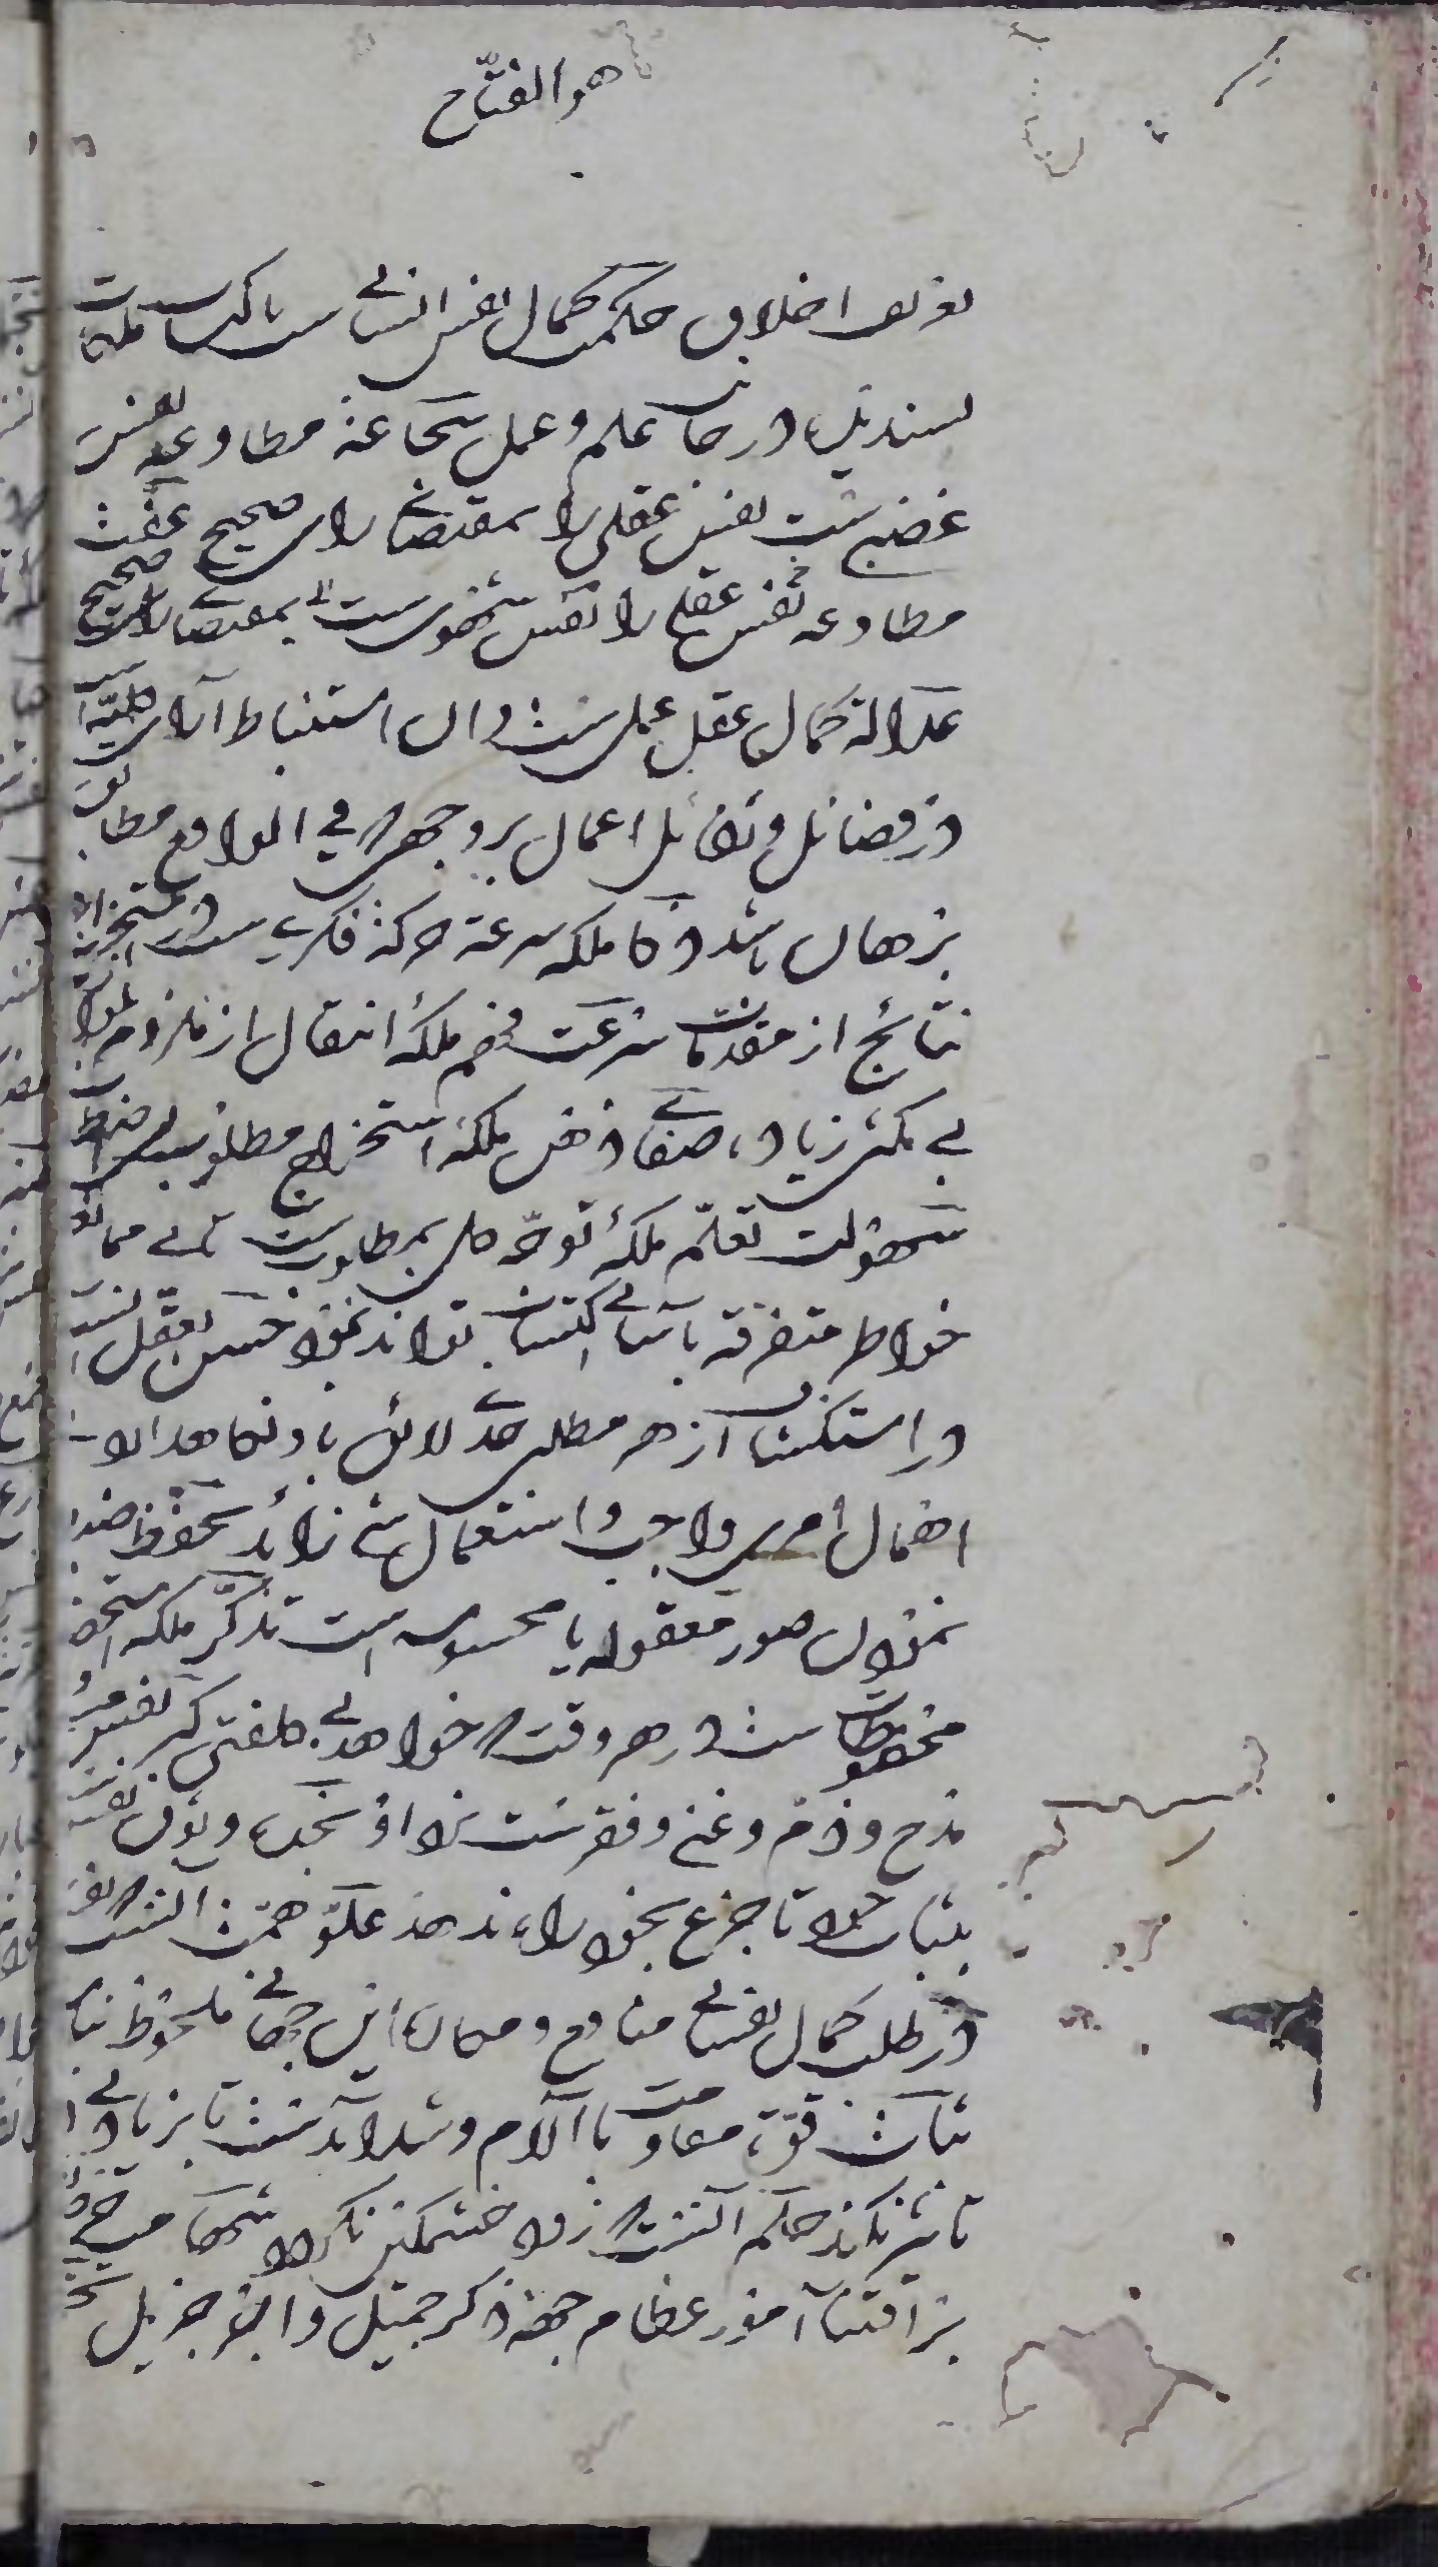 هو الفتّاح
تعریف اخلاق حکمت کمال نفس انسانی ست باکتساب ملکات
پسندیده در جانب علم و عمل شجاعة مطاوعه نفس
غضبی ست نفس عقلی را بمقتضای رای صحیح عفّت
مطاوعه نفس عقلی را نفس شهوی ست بمقتضای رای صحیح
عدالة کمال عقل عملی ست و آن استنباط آرای کلیّه است
در فضائل و رذائل اعمال بر وجهی که فی الواقع مطابق
برهان باشد ذکا ملکه سرعة حرکة فکری ست در استخراج
نتائج از مقدمات سرعت فهم ملکهٔ انتقال از ملزوم بلوازم
بی مکثی زیاده صفای ذهن ملکهٔ استخراج مطلوب بی اضطراب
سهولت تعلّم ملکهٔ توجّه کلی بمطلوب ست بی ممانعت
خواطر متفرقه بآسانی اکتساب تواند نمود حسن تعقّل
در استکشاف از هر مطلبی حدّ لائق باو نگاهدارد
اهمال امری واجب و استعمال شی زائد تحفّظ ضبط
نمودن صور معقوله یا محسوسه است تذکّر ملکه استحضار
محفوظات ست در هر وقت که خواهد بی کلفتی کبر نفس
مدح و ذم و غنی و فقر
بثبات خود تا جزع بخود راه ندهد علوّ همّت آنست که نفس
در طلب کمال نفسانی منافع و مکاره این جهانی ملحوظ
ثبات قوّة مقاومت با آلام و شداید ست تا بزیادتی
تاثیر نکند حلم آنست که زود خشمگین نگردد شهامت
بر اقتنای امور عظام جهة ذکر جمیل و اجر جزیل